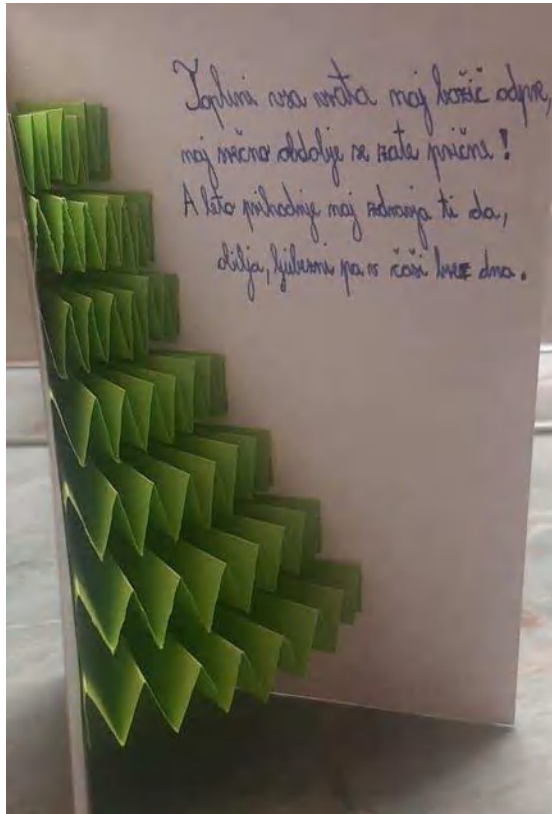 Toplini vsa vrata naj božič odpre,
naj srečno obdobje se zate prične!
A leto prihodnje naj zdravja ti da,
obilja, ljubezni pa v čaši brez dna.